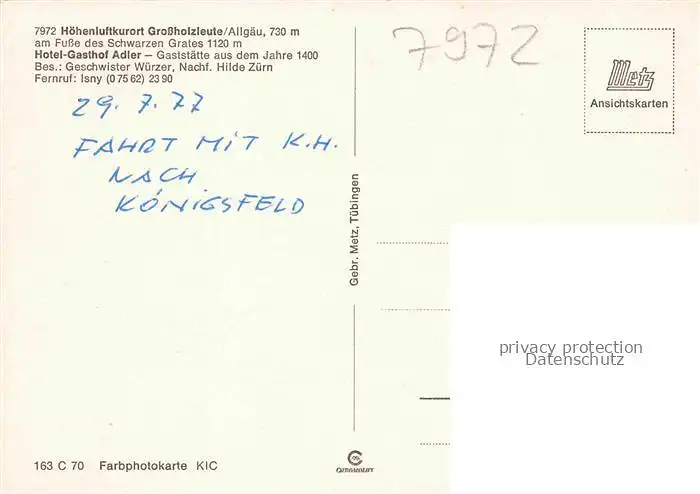 7972 Höhenluftkurort Großholzleute/Allgäu, 730 m
am Fuße des Schwarzen Grates 1120 m
Hotel-Gasthof Adler – Gaststätte aus dem Jahre 1400
Bes.: Geschwister Würzer, Nachf. Hilde Zürn
Fernruf: Isny (0 75 62) 23 90
29. 7. 77
FAHRT MIT K.H.
NACH
KÖNIGSFELD
7972
Metz
Ansichtskarten
Gebr. Metz, Tübingen
privacy protection
Datenschutz
163 C 70 Farbphotokarte KIC
CHROMOLUX